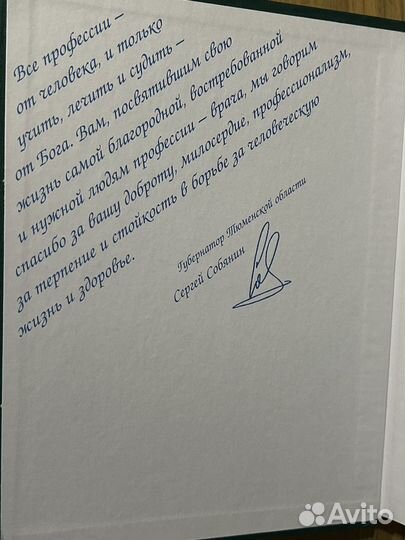 Все профессии –
от человека, и только
учить, лечить и судить –
от Бога. Вам, посвятившим свою
жизнь самой благородной, востребованной
и нужной людям профессии – врача, мы говорим
спасибо за вашу доброту, милосердие, профессионализм,
за терпение и стойкость в борьбе за человеческую
жизнь и здоровье.
Губернатор Тюменской области
Сергей Собянин
Avito